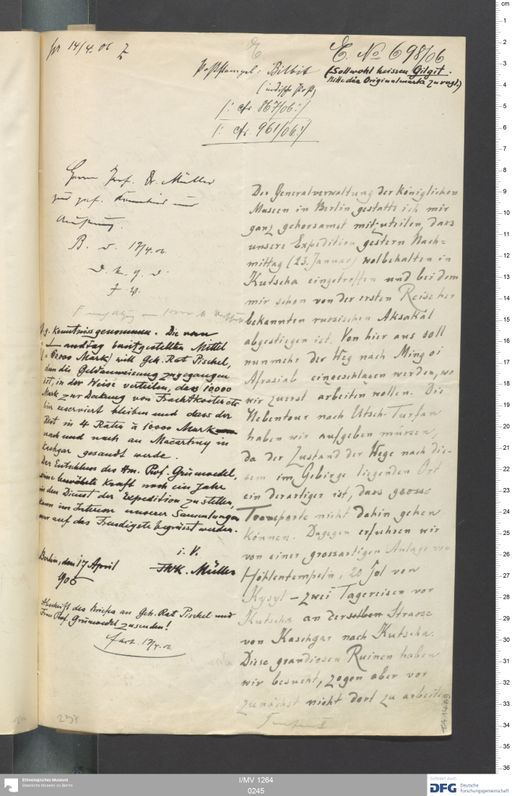 pr 14/4. 06
E. No 698/06
Poststempel: Bilbit
(Soll wohl heissen Gilgit.
Bitte das Originalmarke zuvogt)
(indische Post)
/: cfr 867/06:/
/: cfr 961/06:/
Herrn Prof. Dr. Müller
zur gef. Kenntnis und
Äußerung.
B. d. 17/4. 06
D. K. g. d.
z. g. Kenntniss genommen. Die vom
Landtag bereitgestellten Mittel
(= 61000 Mark) will Geh. Rat Pischel,
wenn die Geldanweisung zugegangen
ist, in der Weise verteilen, das 10000
Mark zur Deckung von Frachtkontrakte
hier reserviert bleiben und dass der
Rest in 4 Raten à 10000 Mark
nach und nach an Macartney in
Kashgar gesandt werde.
Der Entschluss des Hrn. Prof. Grünwedel,
seine bewährte Kraft noch ein Jahr
in den Dienst der Expedition zu stellen,
kann im Interesse unserer Sammlungen
nur auf das Freudigste begrüsst werden.
Berlin, den 17 April
906
i. V.
FWK. Müller
Abschrift des Briefes an Geh. Rat Pischel und
Frau Prof. Grünwedel zusenden!
17/4. 06
Der Generalverwaltung der königlichen
Museen in Berlin gestatte ich mir
ganz gehorsamst mitzuteilen, dass
unsere Expedition gestern Nach-
mittag (23. Januar) wolbehalten in
Kutscha eingetroffen und bei dem
mir schon von der ersten Reise her
bekannten russischen Aksakal
abgestiegen ist. Von hier aus soll
nunmehr der Weg nach Ming oi
Afrosiab eingeschlagen werden, wo
wir zuerst arbeiten wollen. Die
Nebentour nach Utsch-Turfan
haben wir aufgeben müssen,
da der Zustand der Wege nach die-
sem im Gebirge liegenden Ort
ein derartiger ist, dass grosse
Transporte nicht dahin gehen
können. Dagegen erfuhren wir
von einer grossartigen Anlage von
Höhlentempeln, 20 Jol von
Kysyl – zwei Tagereisen vor
Kutscha an derselben Strasse
von Kaschgar nach Kutscha.
Diese grandiosen Ruinen haben
wir besucht, zogen aber vor
zunächst nicht dort zu arbeiten
Ethnologisches Museum
Staatliche Museen zu Berlin
I/MV 1264
0245
DFG Deutsche
Forschungsgemeinschaft